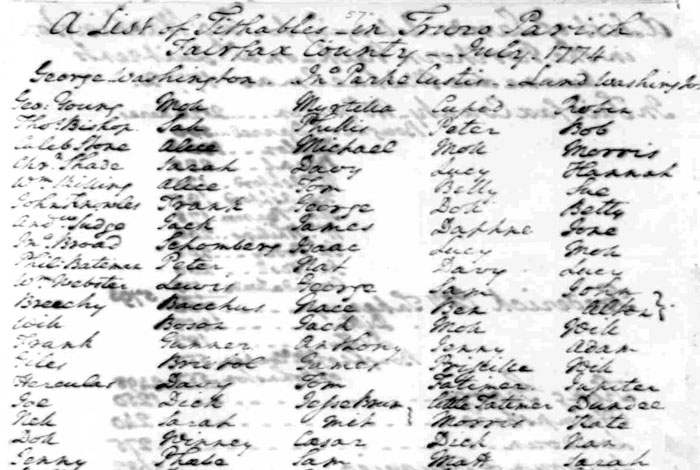 A List of Tithables in Truro Parish
Fairfax County — July. 1774
George Washington Jnº Parke Custis Lund Washington
Geo: Young Moll Myrtilla Cupid Robin
Thoˢ Bishop Sall Phillis Peter Bob
Caleb Stone Alice Michael Moll Morris
Chrˢ Shade Sarah Davy Lucy Hannah
Wm Skilling Alice Tom Betty Sue
John Knowles Frank George Doll Betty
Andʷ Judge Jack James Daphne Jone
Jnº Broad Schomberg Isaac Lucy Moll
Phil: Bateman Peter Nat Davy Lucy
Wm Webster Lewis George Sam John
Breechy Bacchus Nace Ben Alton
Will Boson Jack Moll Will
Frank Gunner Anthony Jenny Adam
Giles Bristol James Priscilla Will
Hercules Davy Tom Tatimer Jupiter
Joe Dick Jesse Little Tatimer Dundee
Nell Sarah Morris Kate
Doll Winney Cæsar Dick Nan
Jenny Phœbe Sam Matt Sarah